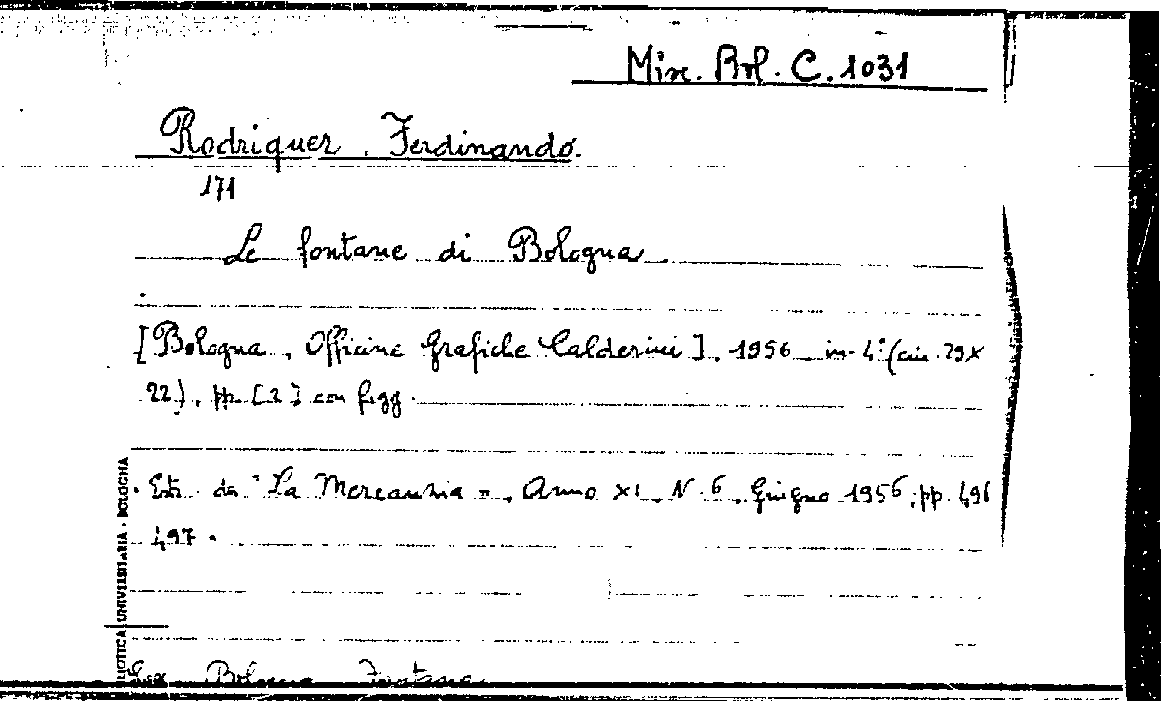 Misc. Bol. C. 1031
Rodriquez, Ferdinando.
171
Le fontane di Bologna
[Bologna, Officine Grafiche Calderini], 1956 in-4° (cm. 29x
22), pp. [2] con figg.
Estr. da "La Mercanzia", Anno XI, N. 6, Giugno 1956, pp. 496
497.
BIBLIOTECA UNIVERSITARIA - BOLOGNA
Bologna Fontane